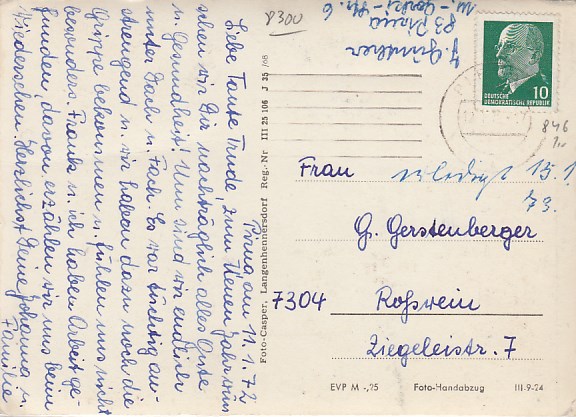 8300
J. Günther
83 Pirna
M.-Gorki-Str. 6
Pirna am 11.1.72
Liebe Tante Trude, zum Neuen Jahr wün
schen wir Dir nachträglich alles Gute
u. Gesundheit! Nun sind wir endlich
unter Dach u. Fach. Es war tüchtig an-
strengend u. wir haben dazu noch die
Grippe bekommen u. fühlen uns nicht
besonders. Frank u. ich haben Arbeit ge-
funden, davon erzählen wir uns beim
Wiedersehen. Herzlichst Deine Johanna u.
Familie
Foto-Casper, Langenhennersdorf Reg.-Nr III 25 106 J 35/68
DEUTSCHE
DEMOKRATISCHE REPUBLIK
10
846
erledigt 15.1.
73.
Frau
G. Gerstenberger
7304 Roßwein
Ziegeleistr. 7
EVP M -,25 Foto-Handabzug III-9-24